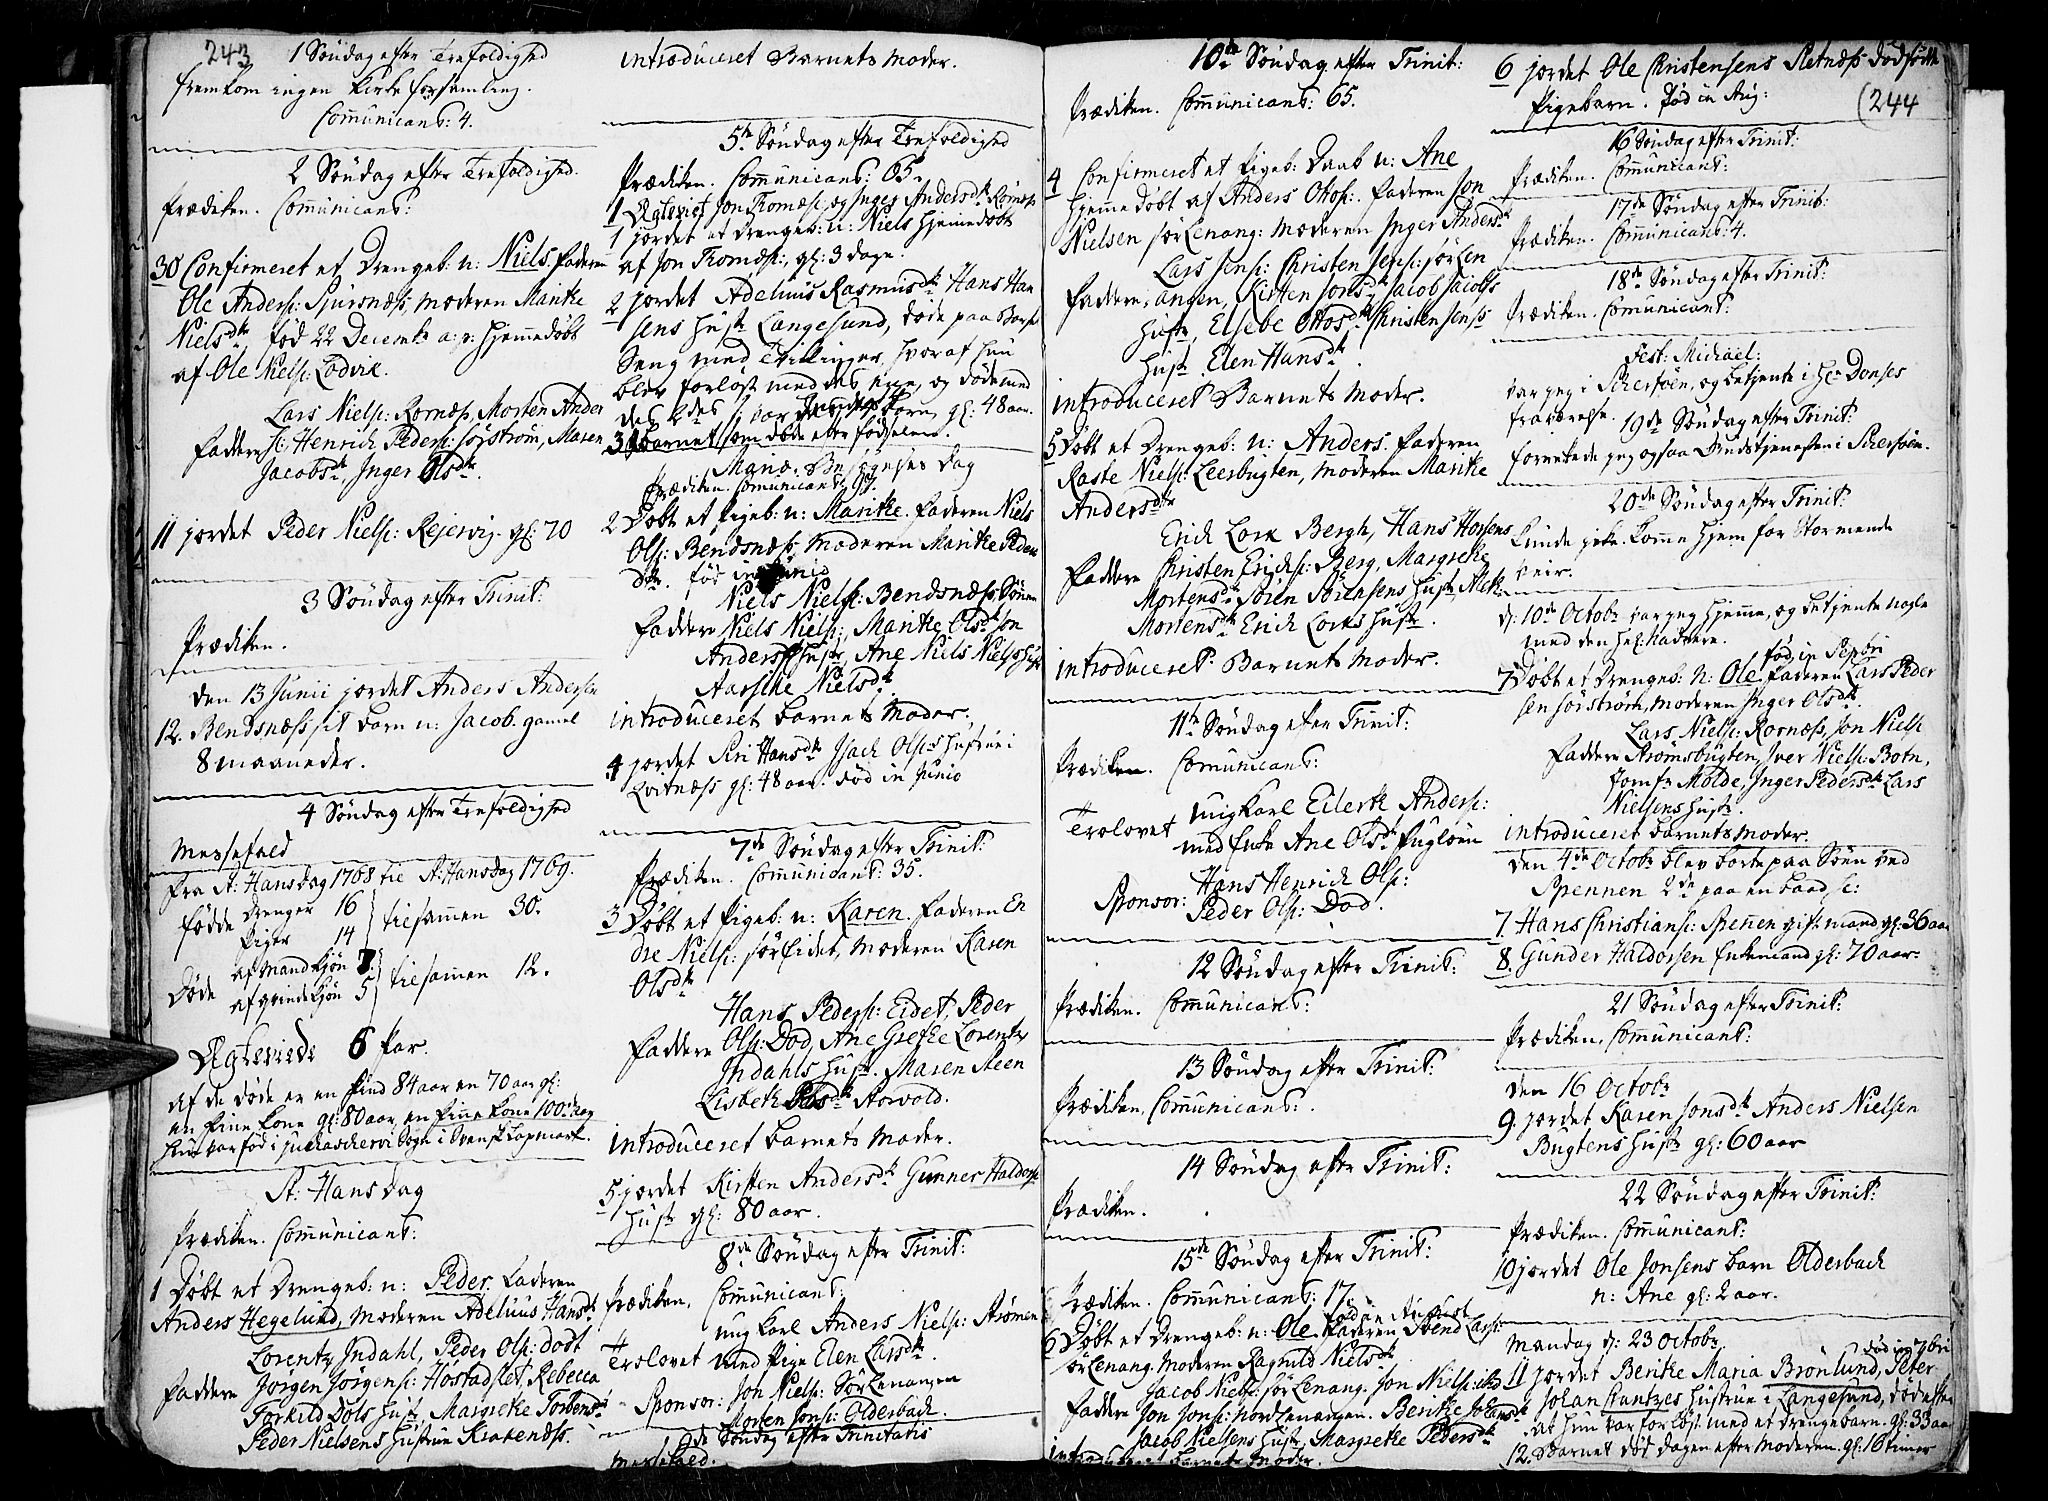 243
1 Søndag efter Trefoldighed
fremkom ingen Kirke forsamling.
Communicant: 4.
2 Søndag efter Trefoldighed.
Prædiken. Communicant:
30 Confirmeret et Drengeb. n: Niels. Faderen
Ole Anders: Spirsnæs, moderen Maritke
Nielsdtr. fød 22 Decembr a: p: hjemmedøbt
af Ole Niels: Lodvik.
Lars Niels: Rornæs, Morten Ander
Faddere s: Henrich Peders: Sørstrøm, Maren
Jacobsdtr, Inger Olsdtr.
11 jordet Peder Niels: Rejervig. gl: 70
3 Søndag efter Trinit:
Prædiken.
den 13 Junii jordet Anders Andersen
12. Bendsnæs sit barn n: Jacob. gamel
8 maaneder.
4 Søndag efter Trefoldighed
Messefald
fra St. Hansdag 1768 til St. Hansdag 1769.
fødde Drenger 16
Piger 14 tilsammen 30.
Døde af Mandkjøn 7
af qvindekjøn 5 tilsamen 12.
Ægteviede 6 Par.
af de døde er en Find 84 aar en 70 aar gl:
en Fine kone gl: 80 aar, en Fine kone 100 aar
Hun var fød i Juckaschervi Sogn i Svensk Lapmark.
St. Hans dag
Prædiken. Communicant:
1 Døbt et Drengeb: n: Peder. Faderen
Anders Hegelund, moderen Adeluus Hansdtr
Lorentz Indahl, Peder Ols: Dodt
Faddere Jørgen Jørgens: Høstadslet, Rebecca
Torkild Dols Hustr, Margretke Torbensd
Peder Nielsens Hustrue Krakenæs.
introduceret Barnets Moder.
5te Søndag efter Trefoldighed
Prædiken. Communicant: 65.
1 Ægteviet Jon Thomæs: og Inger Andersdtr Rornæs
1 jordet et Drengeb: n: Niels hjemmedøbt
af Jon Thomæs:, gl: 3 dage.
2 jordet Adeluus Rasmusdtr Hans Han
sens Hustr Langesund, døde paa Barsel
Seng med Tvillinger, hvoraf hun
blev forløst med des ene, og døde med
des 2des barn, gl: 48 aar.
3 Barnet som døde efter fødselen.
Mariæ Besøgelses Dag
Prædiken. Communicant: 97.
2 Døbt et Pigeb: n: Maritke. Faderen Niels
Ols: Bendsnæs, Moderen Maritke Peders
dtr. fød in Junio
Niels Niels: Bendsnæs
Faddere Niels Niels:, Maritke Olsdtr Jon
Anders: Hustr, Ane Niels Niels: Hustr
Aarsilke Nielsd.
introduceret barnets Moder.
4 jordet Siri Hansdtr Isach Ols: Hustrue i
Qvitnæs gl: 48 aar. død in Junio
7de Søndag efter Trinit:
Prædiken. Communicant: 35.
3 Døbt et Pigeb: n: Karen. Faderen En
dre Niels: Sørfidet, Moderen Karen
Olsdtr
Hans Peders: Eidet, Peder
Faddere Ols: Dod, Ane Gretke Lorentz
Indahls Hustr. Maren Steen
Lisbeth Pedsdtr Aorvold.
introduceret barnets Moder.
5 jordet Kirsten Andersdtr Gunner Haldors:
Hustr gl: 80 aar.
8de Søndag efter Trinit:
Prædiken. Communicant:
ung karl Anders Niels: Strømen
Trolovet med Pige Elen Larsdtr.
Sponsor: Jon Niels: Sørlenangen
Morten Jons: Olderbach.
9de Søndag efter Trinitatis
Messefald.
10de Søndag efter Trinit:
Prædiken. Communicant: 65.
4 Confirmeret et Pigeb: Daab n: Ane
hjemme døbt af Anders Ottos: Faderen Jon
Nielsen Sørlenang: Moderen Inger Andersdtr
Lars Jens: Christen Jens: Sørlen
Faddere, angen, Kirsten Jonsdtr Jacob Jacobs
Hustr, Elsebe Ottosdtr Christen Jenss
Hust Elen Hansdtr.
introduceret Barnets Moder.
5 Døbt et Drengeb: n: Anders. Faderen
Raste Niels: Leerbugten, moderen Maritke
Andersdtr
Erich Lork Bergh, Hans Horsens
Faddere Christen Erichs: Berg, Margretke
Mortensdtr Søren Sørensens Hustr, Aletke
Mortensdtr Erich Lorks Hustr.
introduceret Barnets Moder.
11te Søndag efter Trinit:
Prædiken. Communicant:
Trolovet ungkarl Eilertk Anders:
med Enke Ane Olsdtr Fugløen
Sponsor: Hans Henrich Ols:
Peder Ols: Dod.
12 Søndag efter Trinit:
Prædiken. Communicant:
13 Søndag efter Trinit:
Prædiken. Communicant:
14 Søndag efter Trinit:
Prædiken.
15de Søndag efter Trinit:
Prædiken. Communicant: 17.
fød in August
6 Døbt et Drengeb: n: Ole. Faderen Svend Lars:
Sørlenang. Moderen Ragnild Nielsdtr
Jacob Niels: Sørlenang. Jon Niels: ibid
Faddere Jon Jons: Nordlenangen. Bentke Olsdtr
Jacob Nielsens Hustr, Margretke Pedersdtr
introduceret barnets Moder.
6 jordet Ole Christensens Sletnæs dødfødt
Pigebarn. død in Aug:
(244
16 Søndag efter Trinit:
Prædiken. Communicant:
17de Søndag efter Trinit:
Prædiken. Communicant: 4.
18de Søndag efter Trinit:
Prædiken. Communicant:
Fest: Michael:
var jeg i Schersøen, og betjente i Hr Donses
fraværelse. 19de Søndag efter Trinit:
forrettede jeg ogsaa Gudstjenesten i Schersøen.
20de Søndag efter Trinit:
Kunde ikke komme hjem for Stormende
veir.
d: 10de Octobr var jeg hjemme, og betjente nogle
med den hel: Nadvere.
fød in Septbr
7 Døbt et Drengeb: N: Ole. Faderen Lars Peder
sen Sørstrøm, moderen Inger Olsdtr.
Lars Niels: Rornæs, Jon Niels
Faddere Strømsbugten, Iver Niels: Botn,
Jomfr Molde, Inger Pedersdtr Lars
Nielsens Hustr.
introduceret barnets moder.
den 4de Octobr blev borte paa Søen ved
Spennen 2de paa en baad, s:
7. Hans Christians: Spenen gift mand gl: 36 aar
8. Gunder Haldorsen Enkemand gl: 70 aar:
21 Søndag efter Trinit:
Prædiken. Communicant:
den 16 Octobr
9. jordet Karen Jonsdtr Anders Nielsen
Bugtens Hustr gl: 60 aar
22 Søndag efter Trinit:
Prædiken. Communicant:
10 jordet Ole Jonsens barn Olderbach
n: Ane gl: 2 aar.
Mandag d: 23 Octobr
død in 7bri
11 jordet Bentke Maria Brønlund, Peter
Johan Stuntzes Hustrue i Langesund, død efter
at hun var forløst med et Drengebarn. gl: 33 aar
12. Barnet død dagen efter moderen. gl: 16 timer